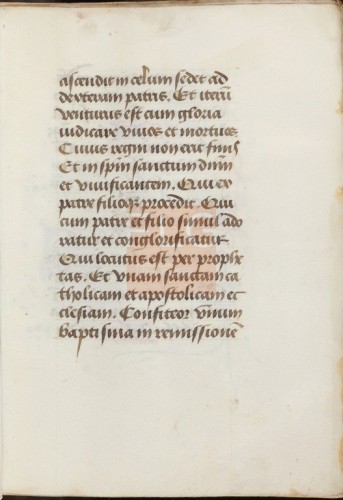 ascendit in celum sedet ad
dexteram patris. Et iterū
venturus est cum gloria
iudicare viuos et mortuos.
Cuius regni non erit finis
Et in spm̄ sanctum dnm̄
et viuificantem. Qui ex
patre filioqꝫ procedit. Qui
cum patre et filio simul ado
ratur et conglorificatur
Qui locutus est per prophe
tas. Et vnam sanctam ca
tholicam et apostolicam ec
clesiam. Confiteor vnum
baptisma in remissionē